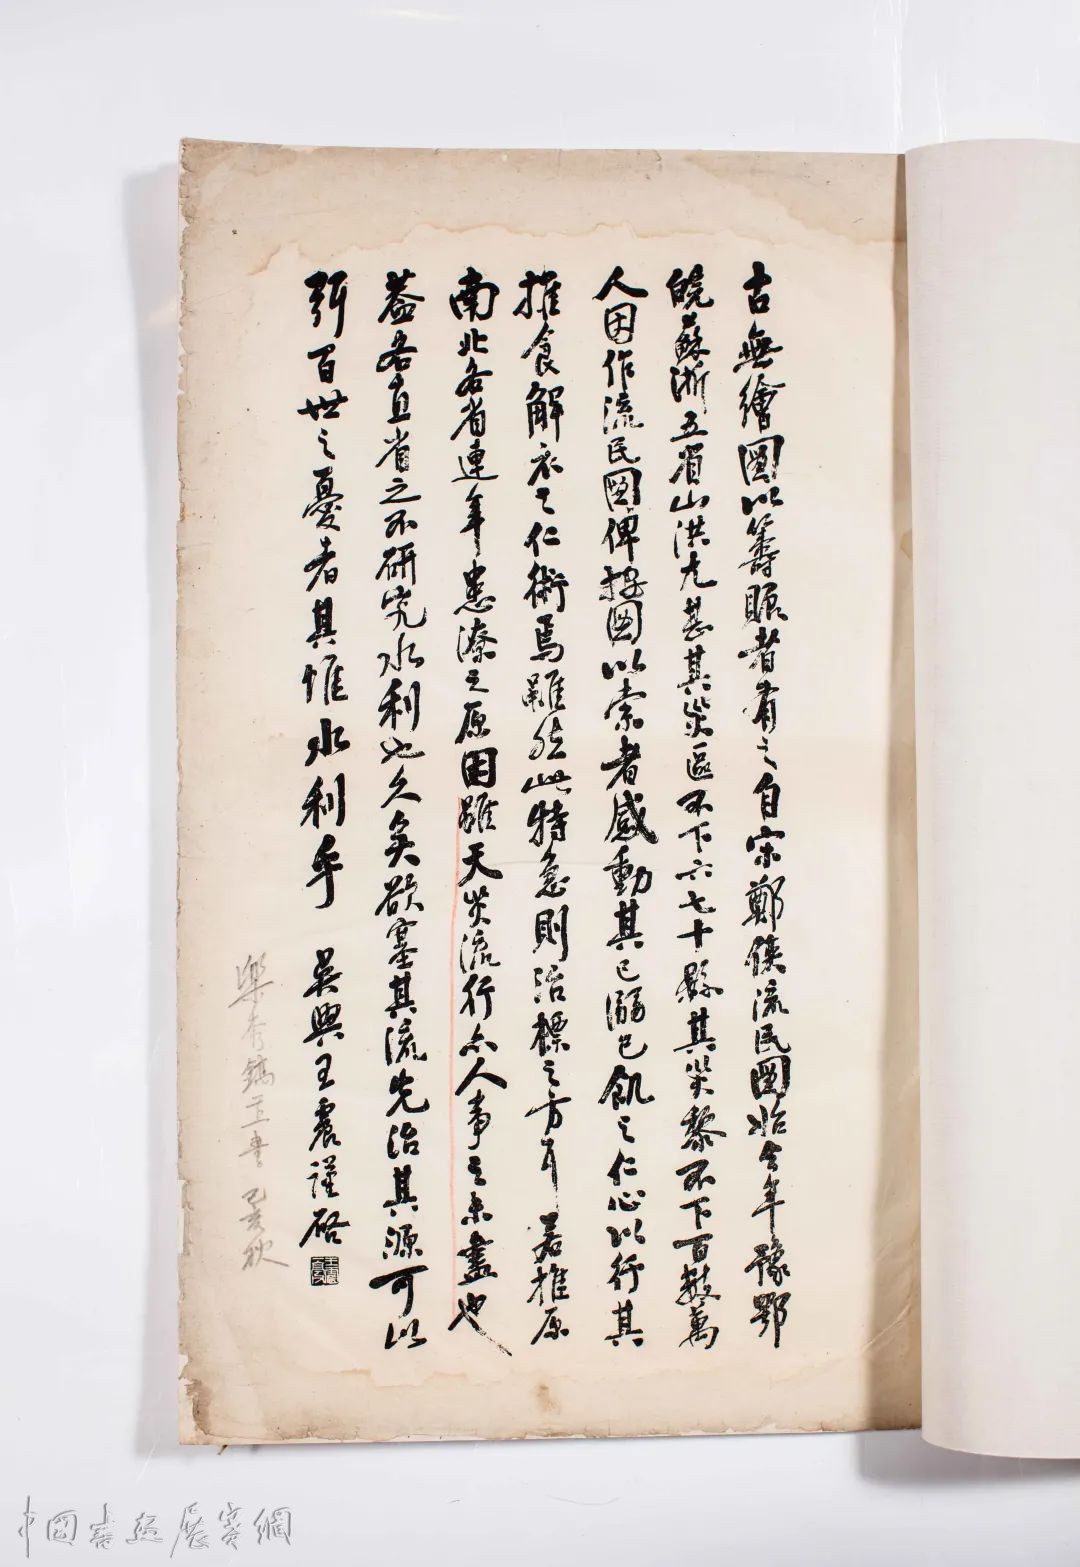 古無繪圖以籌賑者有之自宋鄭俠流民圖始今年豫鄂
皖蘇浙五省山洪尤甚其災區不下六七十縣其災黎不下百数萬
人因作流民圖俾按圖以索者感動其己溺己飢之仁心以行其
推食解衣之仁術焉雖然此特急則治標之方耳若推原
南北各省連年患潦之原因雖天災流行亦人事之未盡也
蓋各直省之不研究水利也久矣欲塞其流先治其源可以
弭百世之憂者其惟水利乎 吳興王震謹啓
己亥秋
中國書畫展賽網